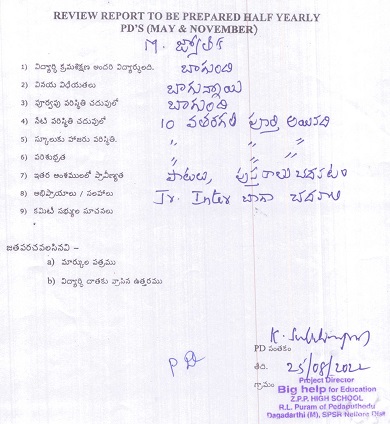 REVIEW REPORT TO BE PREPARED HALF YEARLY
PD'S (MAY & NOVEMBER)
M. జ్యోతిక
1) విద్యార్థి క్రమశిక్షణ అందరి విద్యార్థులది. బాగుంది
2) వినయ విధేయతలు బాగున్నాయి
3) పూర్వపు పరిస్థితి చదువులో బాగుంది
4) నేటి పరిస్థితి చదువులో 10 వతరగతి పూర్తి అయినది
5) స్కూలుకు హాజరు పరిస్థితి. " "
6) పరిశుభ్రత " "
7) ఇతర అంశములలో ప్రావీణ్యత పాటలు, పుస్తకాలు చదవటం
8) అభిప్రాయాలు / సలహాలు Jr. Inter బాగా చదవాలి
9) కమిటీ సభ్యుల సూచనలు
జతపరచవలసినవి -
a) మార్కుల పత్రము
b) విద్యార్థి దాతకు వ్రాసిన ఉత్తరము
PD
PD సంతకం
తేది. 25/08/2022
గ్రామం
Project Director
Big help for Education
Z.P.P. HIGH SCHOOL
R.L. Puram of Pedaputhedu
Dagadarthi (M), SPSR Nellore Dist